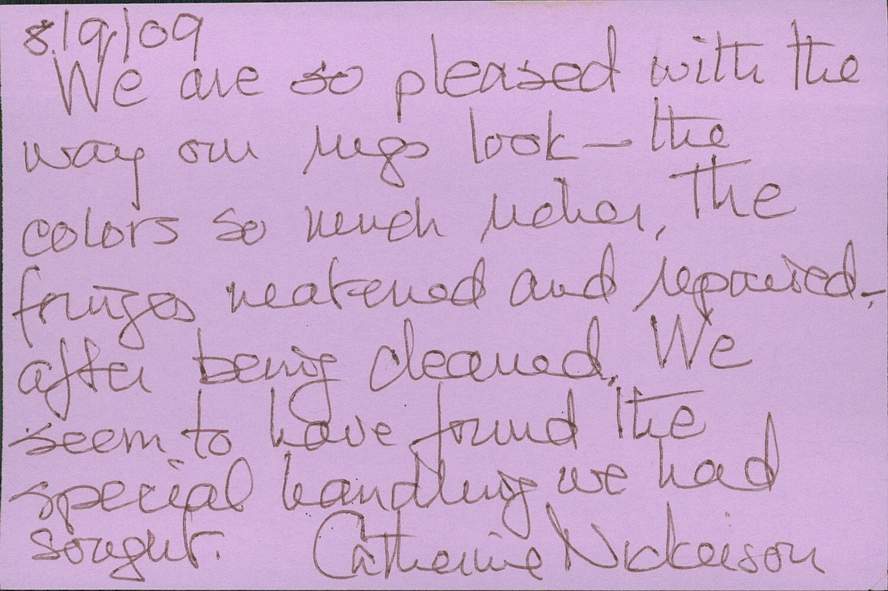 8/9/09
We are so pleased with the
way our rugs look – the
colors so much richer, the
fringes neatened and repaired –
after being cleaned. We
seem to have found the
special handling we had
sought. Catherine Nickerson